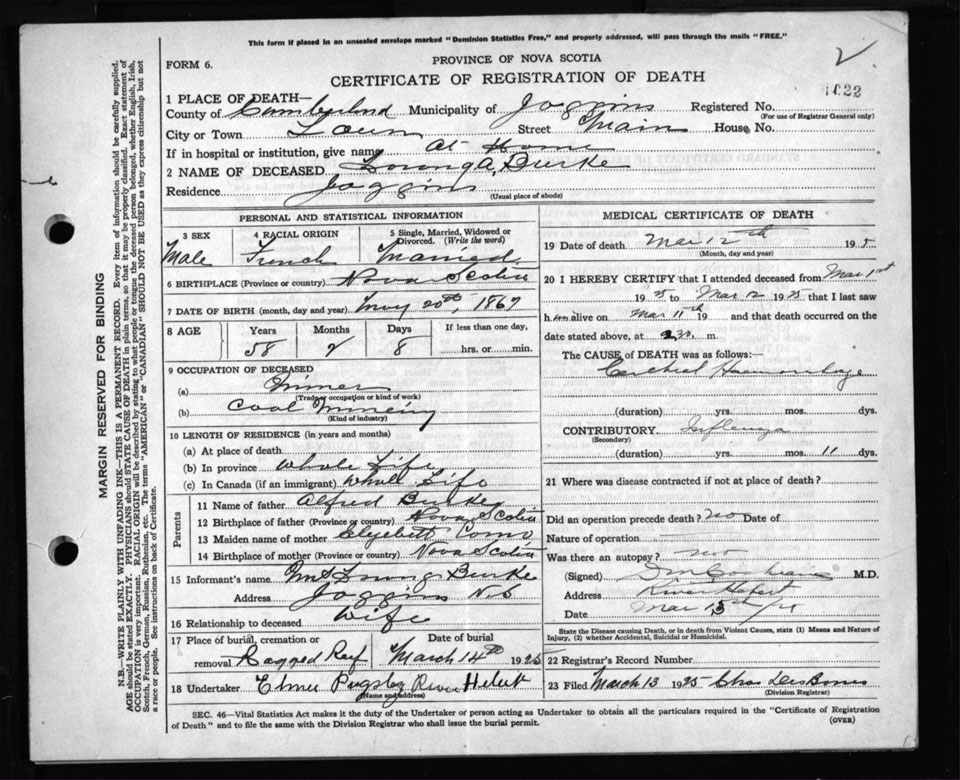 This form if placed in an unsealed envelope marked "Dominion Statistics Free," and properly addressed, will pass through the mails "FREE."
FORM 6.
PROVINCE OF NOVA SCOTIA
CERTIFICATE OF REGISTRATION OF DEATH
1022
1 PLACE OF DEATH—
County of Cumberland Municipality of Joggins Registered No.
(For use of Registrar General only)
City or Town Town Street Main House No.
If in hospital or institution, give name at Home
2 NAME OF DECEASED Burke
Residence Joggins
(Usual place of abode)
PERSONAL AND STATISTICAL INFORMATION
3 SEX 4 RACIAL ORIGIN 5 Single, Married, Widowed or Divorced. (Write the word)
Male French Married
6 BIRTHPLACE (Province or country) Nova Scotia
7 DATE OF BIRTH (month, day and year) 20th, 1867
8 AGE Years Months Days If less than one day,
58 2 8 hrs. or min.
9 OCCUPATION OF DECEASED
(a) Miner
(Trade or occupation or kind of work)
(b) Coal Mining
(Kind of industry)
10 LENGTH OF RESIDENCE (in years and months)
(a) At place of death
(b) In province Whole Life
(c) In Canada (if an immigrant) Whole Life
Parents
11 Name of father Alfred Burke
12 Birthplace of father (Province or country) Nova Scotia
13 Maiden name of mother Como
14 Birthplace of mother (Province or country) Nova Scotia
15 Informant's name Mrs Burke
Address Joggins N S
16 Relationship to deceased Wife
17 Place of burial, cremation or removal Ragged Reef Date of burial March 14th 1925
18 Undertaker Elmer Pugsley River Hebert
(Name and address)
MEDICAL CERTIFICATE OF DEATH
19 Date of death Mar 12th 1925
(Month, day and year)
20 I HEREBY CERTIFY that I attended deceased from Mar 1st
1925 to Mar 12 1925 that I last saw
him alive on Mar 11th 19 and that death occurred on the
date stated above, at 2.30 m.
The CAUSE of DEATH was as follows:
Cerebral Haemorrhage
(duration) yrs. mos. dys.
CONTRIBUTORY Influenza
(Secondary)
(duration) yrs. mos. 11 dys.
21 Where was disease contracted if not at place of death?
Did an operation precede death? no Date of
Nature of operation
Was there an autopsy? no
(Signed) Cochrane M.D.
Address River Hebert
Date Mar 13th/25
State the Disease causing Death, or in death from Violent Causes, state (1) Means and Nature of Injury, (2) whether Accidental, Suicidal or Homicidal.
22 Registrar's Record Number
23 Filed March 13 1925 Chas
(Division Registrar)
SEC. 46—Vital Statistics Act makes it the duty of the Undertaker or person acting as Undertaker to obtain all the particulars required in the "Certificate of Registration
of Death" and to file the same with the Division Registrar who shall issue the burial permit.
(OVER)
MARGIN RESERVED FOR BINDING
N.B.—WRITE PLAINLY WITH UNFADING INK—THIS IS A PERMANENT RECORD. Every item of information should be carefully supplied.
AGE should be stated EXACTLY. PHYSICIANS should STATE CAUSE OF DEATH in plain terms, so that it may be properly classified. Exact statement of
OCCUPATION is very important. RACIAL ORIGIN will be described by stating to what people or tongue the deceased person belonged, whether English, Irish,
Scotch, French, German, Russian, Ruthenian, etc. The terms "AMERICAN" or "CANADIAN" SHOULD NOT BE USED as they express citizenship but not
a race or people. See instructions on back of Certificate.